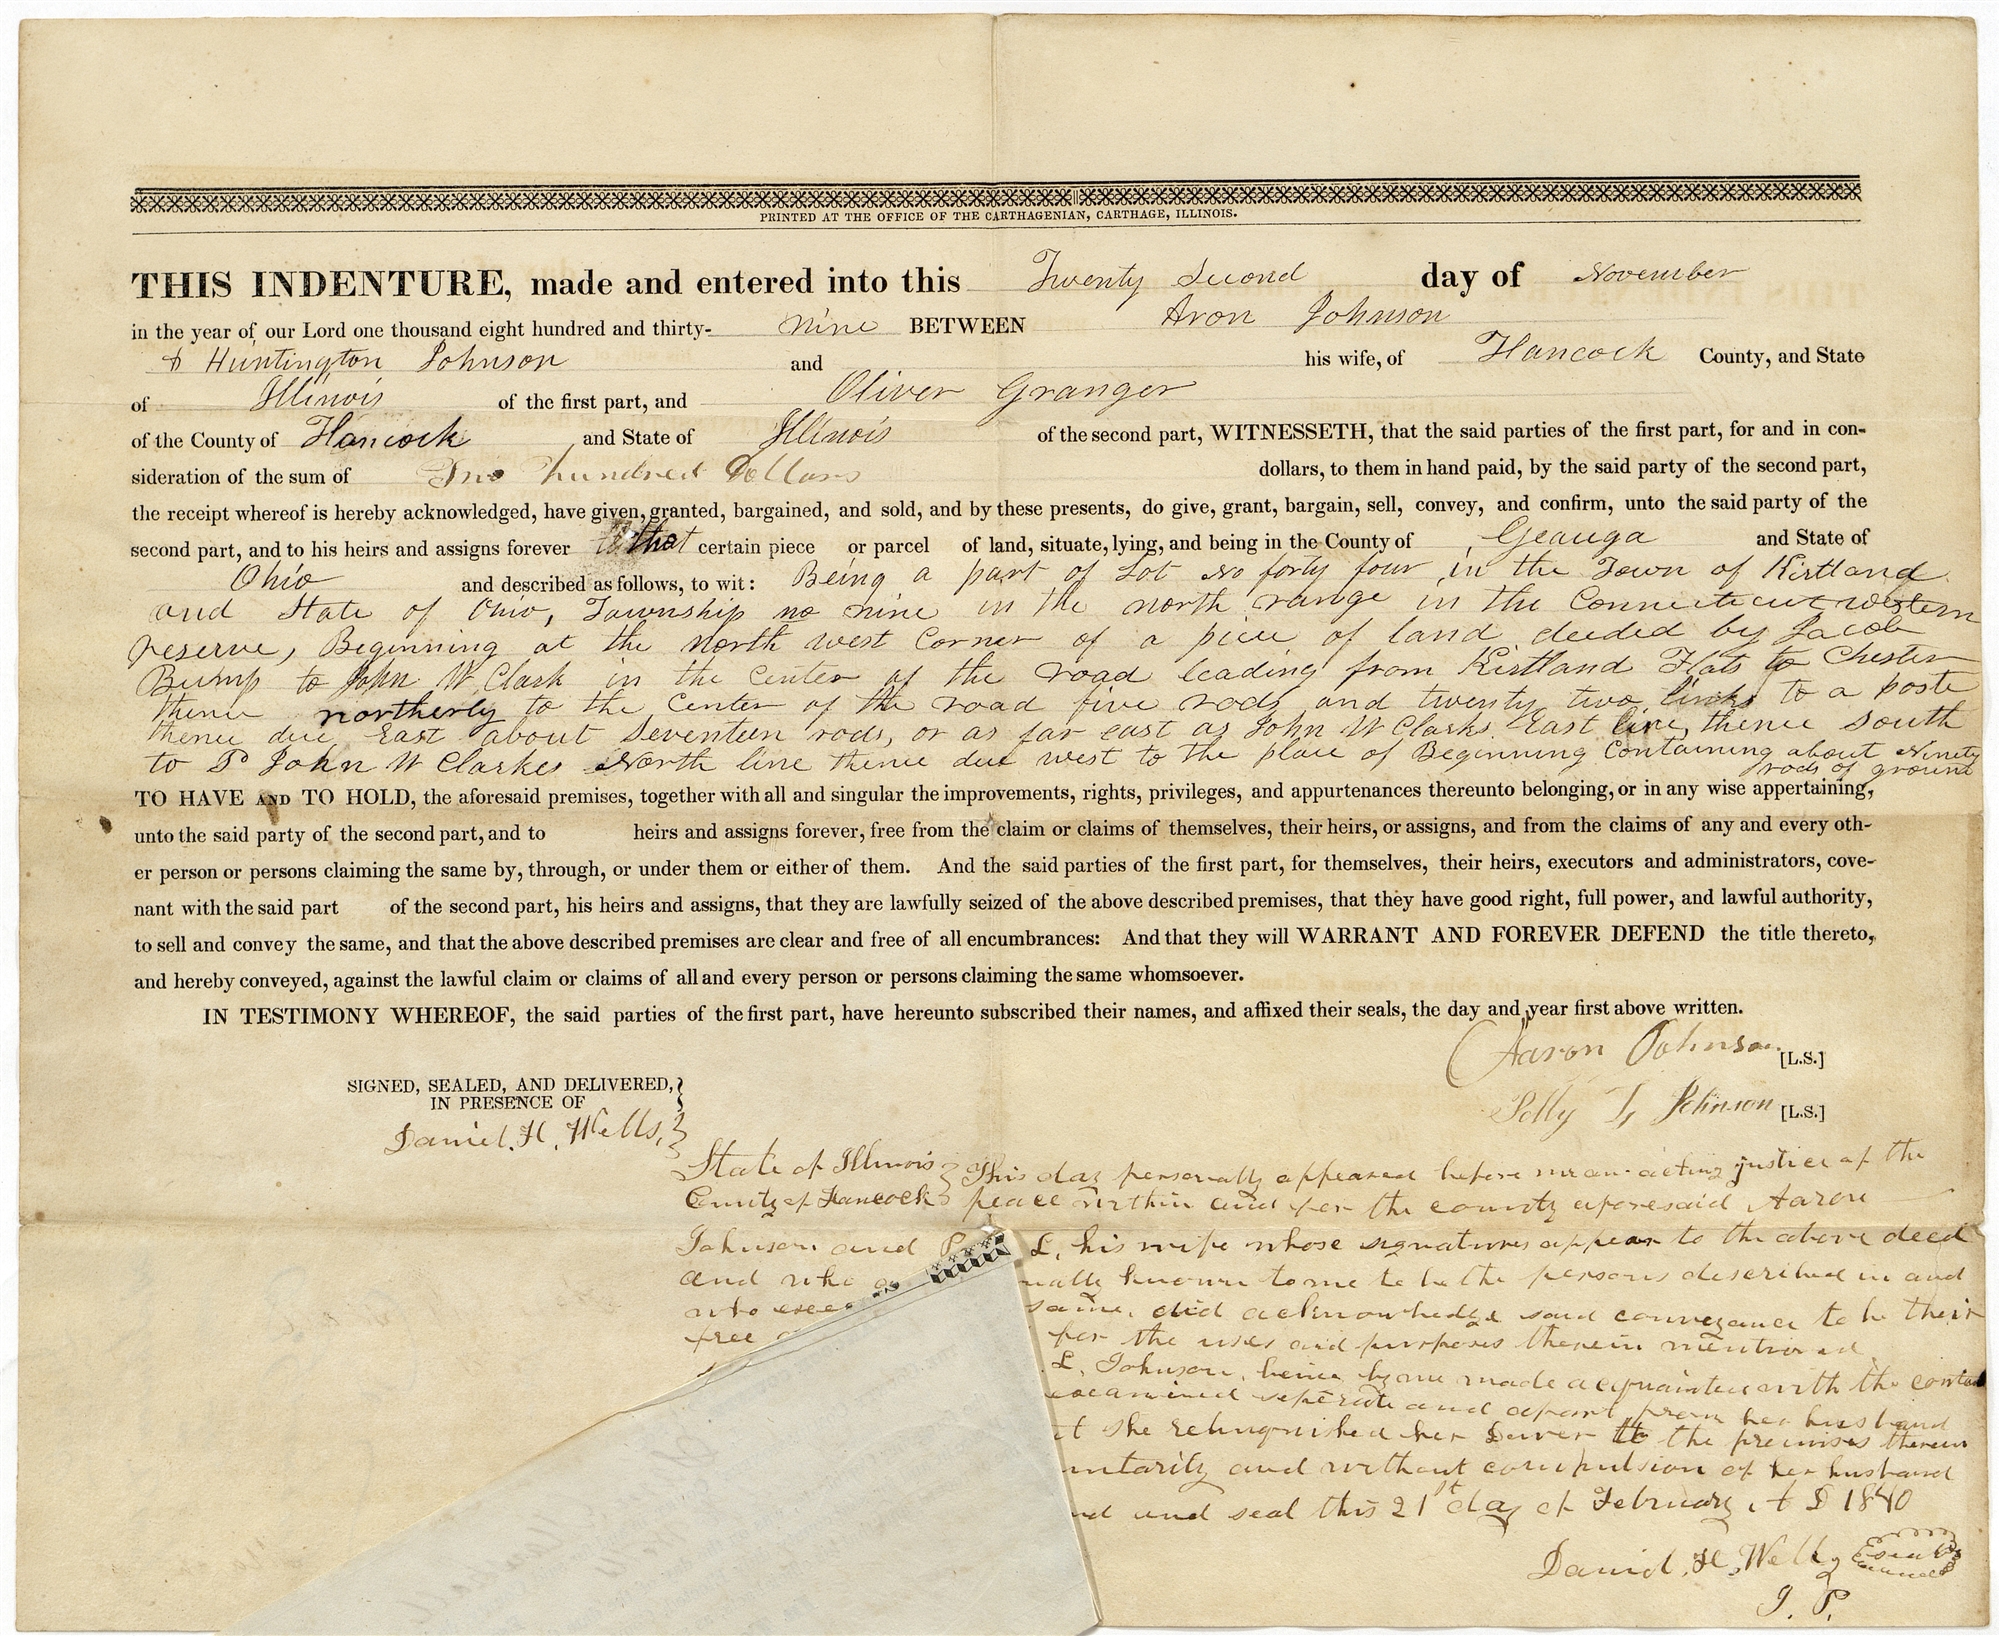 PRINTED AT THE OFFICE OF THE CARTHAGENIAN, CARTHAGE, ILLINOIS.
THIS INDENTURE, made and entered into this Twenty Second day of November
in the year of our Lord one thousand eight hundred and thirty- nine BETWEEN Aron Johnson
& Huntington Johnson and his wife, of Hancock County, and State
of Illinois of the first part, and Oliver Granger
of the County of Hancock and State of Illinois of the second part, WITNESSETH, that the said parties of the first part, for and in con-
sideration of the sum of Two hundred Dollars dollars, to them in hand paid, by the said party of the second part,
the receipt whereof is hereby acknowledged, have given, granted, bargained, and sold, and by these presents, do give, grant, bargain, sell, convey, and confirm, unto the said party of the
second part, and to his heirs and assigns forever that certain piece or parcel of land, situate, lying, and being in the County of Geauga and State of
Ohio and described as follows, to wit: Being a part of Lot No forty four in the Town of Kirtland
and State of Ohio, Township no nine in the north range in the Connecticut western
reserve, Beginning at the north west Corner of a piece of land deeded by Jacob
Bump to John W Clark in the Center of the road leading from Kirtland Flats to Chester
thence northerly to the Center of the road five rods and twenty two links to a poste
thence due East about Seventeen rods, or as far east as John W Clarks East line, thence South
to John W Clarkes North line thence due west to the place of Beginning Containing about Ninety
rods of ground
TO HAVE AND TO HOLD, the aforesaid premises, together with all and singular the improvements, rights, privileges, and appurtenances thereunto belonging, or in any wise appertaining,
unto the said party of the second part, and to heirs and assigns forever, free from the claim or claims of themselves, their heirs, or assigns, and from the claims of any and every oth-
er person or persons claiming the same by, through, or under them or either of them. And the said parties of the first part, for themselves, their heirs, executors and administrators, cove-
nant with the said part of the second part, his heirs and assigns, that they are lawfully seized of the above described premises, that they have good right, full power, and lawful authority,
to sell and convey the same, and that the above described premises are clear and free of all encumbrances: And that they will WARRANT AND FOREVER DEFEND the title thereto,
and hereby conveyed, against the lawful claim or claims of all and every person or persons claiming the same whomsoever.
IN TESTIMONY WHEREOF, the said parties of the first part, have hereunto subscribed their names, and affixed their seals, the day and year first above written.
Aaron Johnson [L.S.]
SIGNED, SEALED, AND DELIVERED,
IN PRESENCE OF
Polly L Johnson [L.S.]
Daniel. H. Wells,
State of Illinois This day personally appeared before me an acting justice of the
County of Hancock peace within and for the county aforesaid Aaron
Johnson and P L, his wife whose signatures appear to the above deed
and who known to me to be the persons described in and
who same, did acknowledge said conveyance to be their
free for the uses and purposes therein mentioned
L. Johnson, being by me made acquainted with the
examined seperate and apart from her husband
she relinquished her Dower to the premises therein
and without compulsion of her husband
and seal this 21st day of February A D 1840
Daniel. H. Wells
J. P.